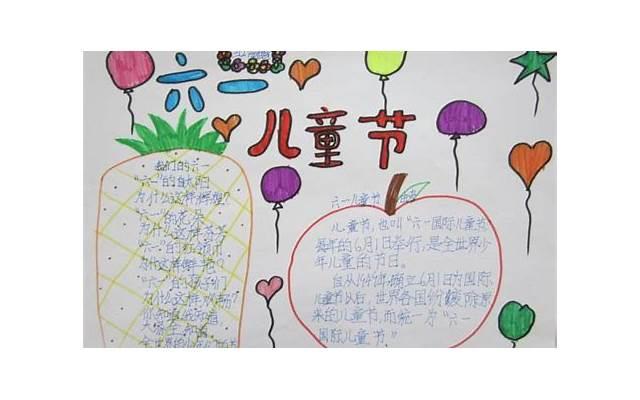 六一
儿童节
我们的六一
"六一"的太阳
为什么这样辉煌?
"六一"的花朵
为什么这样芬芳
"六一"的红领巾
为什么这样鲜艳?
"六一"的孩子们
为什么这样欢畅?
你知道我知道,
大家全知道,
六一儿童节
儿童节,也叫"六一国际儿童节
每年的6月1日举行,是全世界少
年儿童的节日。
自从1949年确立6月1日为国际
儿童节以后,世界各国纷纷废除原
来的儿童节,而统一为"六一
国际儿童节"